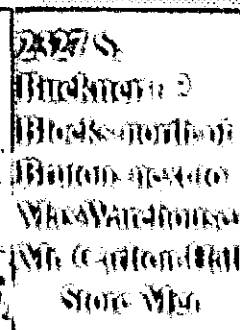 2327 S.
Buckner 
Blocks north of
Bruton next to
Max Warehouse
Mr. Carlton Hall
Store Mgr.